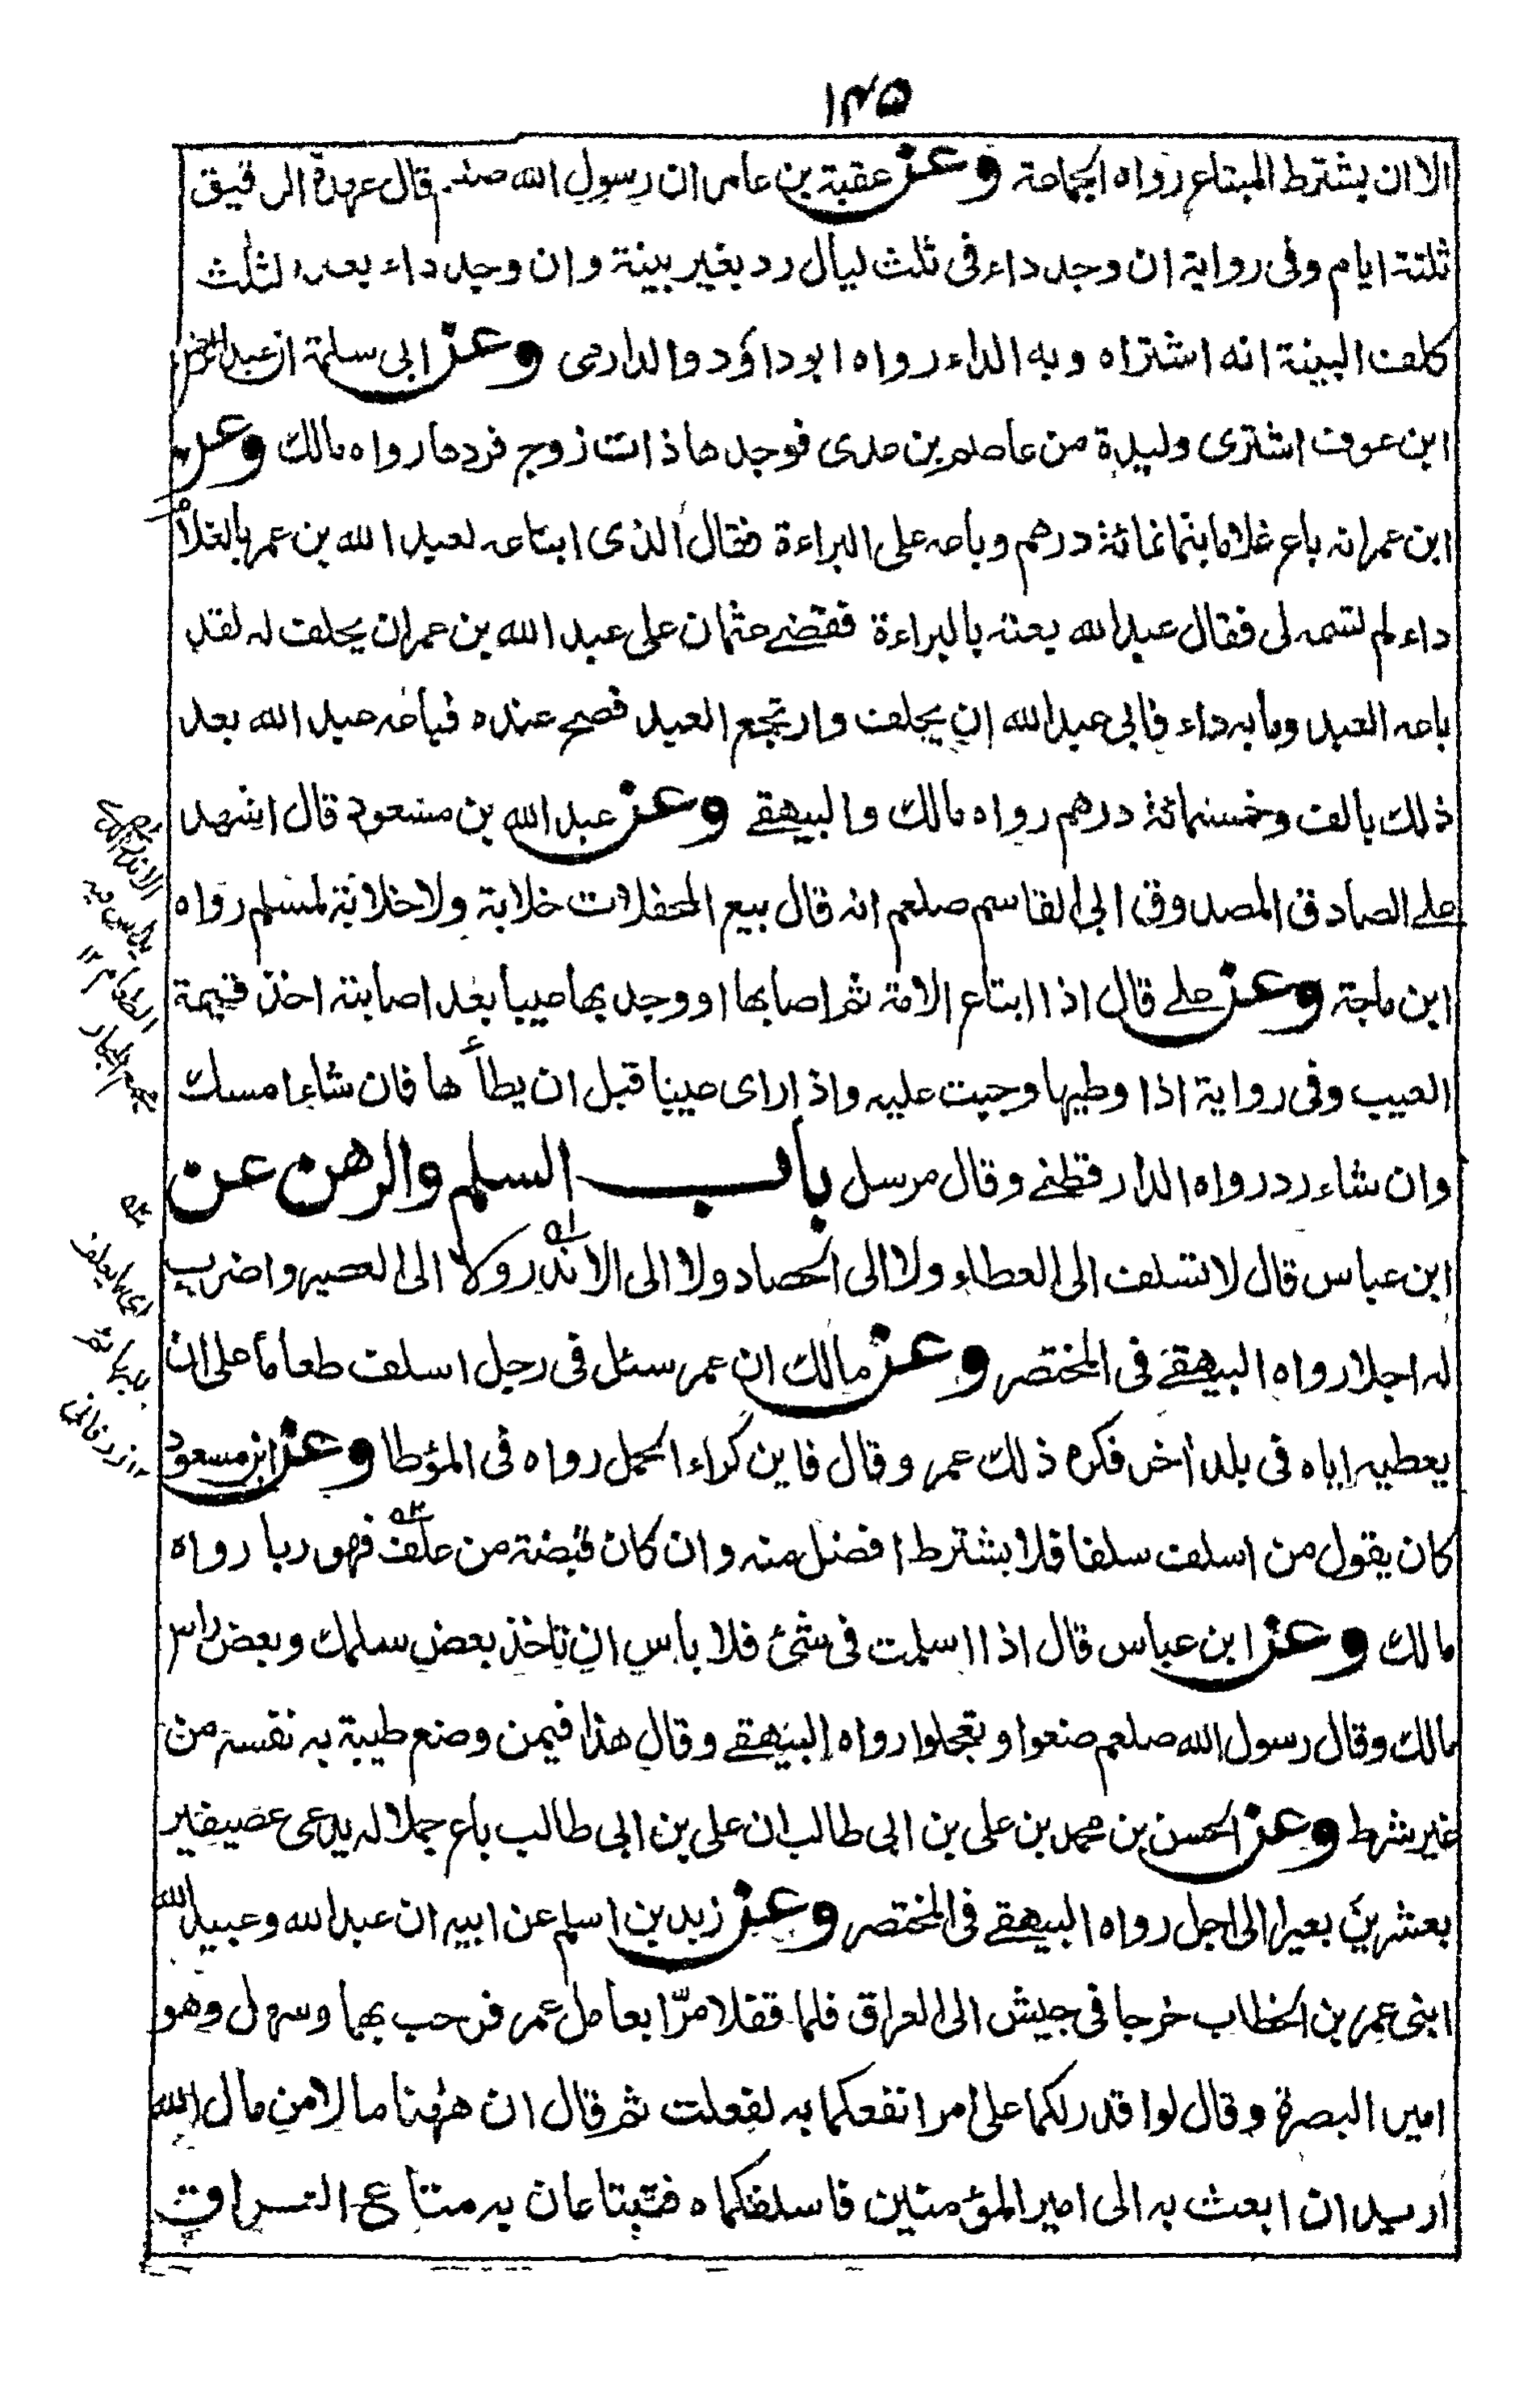 ١٣٥
الا ان يشترط المبتاع رواه الجماعة وعن عقبة بن عامر ان رسول الله صلم قال عهدة الرقيق
ثلثة ايام وفى رواية ان وجد داء فى ثلث ليال رد بغير بينة وان وجد داء بعد الثلث
كلف البينة انه اشتراه وبه الداء رواه ابو داؤد والدارمى وعن ابى سلمة ان عبد الرحمن
ابن عوف اشترى وليدة من عاصم بن عدى فوجدها ذات زوج فردها رواه مالك وعن
ابن عمر انه باع غلاما بثمانمائة درهم وباعه على البراءة فقال الذى ابتاعه لعبد الله بن عمر بالغلام
داء لم تسمه لى فقال عبد الله بعته بالبراءة فقضے عثمان على عبد الله بن عمر ان يحلف له لقد
باعه العبد وما به داء فابى عبد الله ان يحلف وارتجع العبد فصح عنده فباعه عبد الله بعد
ذلك بالف وخمسمائة درهم رواه مالك والبيهقے وعن عبد الله بن مسعود قال اشهد
علے الصادق المصدوق ابى القاسم صلعم انه قال بيع المحفلات خلابة ولا خلابة لمسلم رواه
ابن ماجة وعن علے قال اذا ابتاع الامة ثم اصابها او وجد بها عيبا بعد اصابته اخذ قيمة
العيب وفى رواية اذا وطيها وجبت عليه واذا راى عيبا قبل ان يطأ ها فان شاء امسك
وان شاء رد رواه الدارقطنے وقال مرسل باب السلم والرهن عن
ابن عباس قال لا تسلف الى العطاء ولا الى الحصاد ولا الى الاندر ولا الى العصير واضرب
له اجلا رواه البيهقے فى المختصر وعن مالك ان عمر سئل فى رجل اسلف طعاما على ان
يعطيه اياه فى بلد أخر فكره ذلك عمر وقال فاين كراء الحمل رواه فى المؤطا وعن ابن مسعود
كان يقول من اسلف سلفا فلا يشترط افضل منه وان كان قبضة من علف فهو ربا رواه
مالك وعن ابن عباس قال اذا اسلمت فى شئ فلا باس ان تاخذ بعض سلمك وبعض راس
مالك وقال رسول الله صلعم ضعوا وتعجلوا رواه البيهقے وقال هذا فيمن وضع طيبة به نفسه من
غير شرط وعن الحسن بن محمد بن على بن ابى طالب ان على بن ابى طالب باع جملا له يدعى عصيفير
بعشرين بعيرا الى اجل رواه البيهقے فى المختصر وعن زيد بن اسلم عن ابيه ان عبد الله وعبيد الله
ابنى عمر بن الخطاب خرجا فى جيش الى العراق فلما قفلا مرّا بعامل عمر فرحب بهما وسهل وهو
امير البصرة وقال لو اقدر لكما على امر انفعكما به لفعلت ثم قال ان ههنا مالا من مال الله
اريد ان ابعث به الى امير المؤمنين فاسلفكماه فتبتاعان به متاع العراق